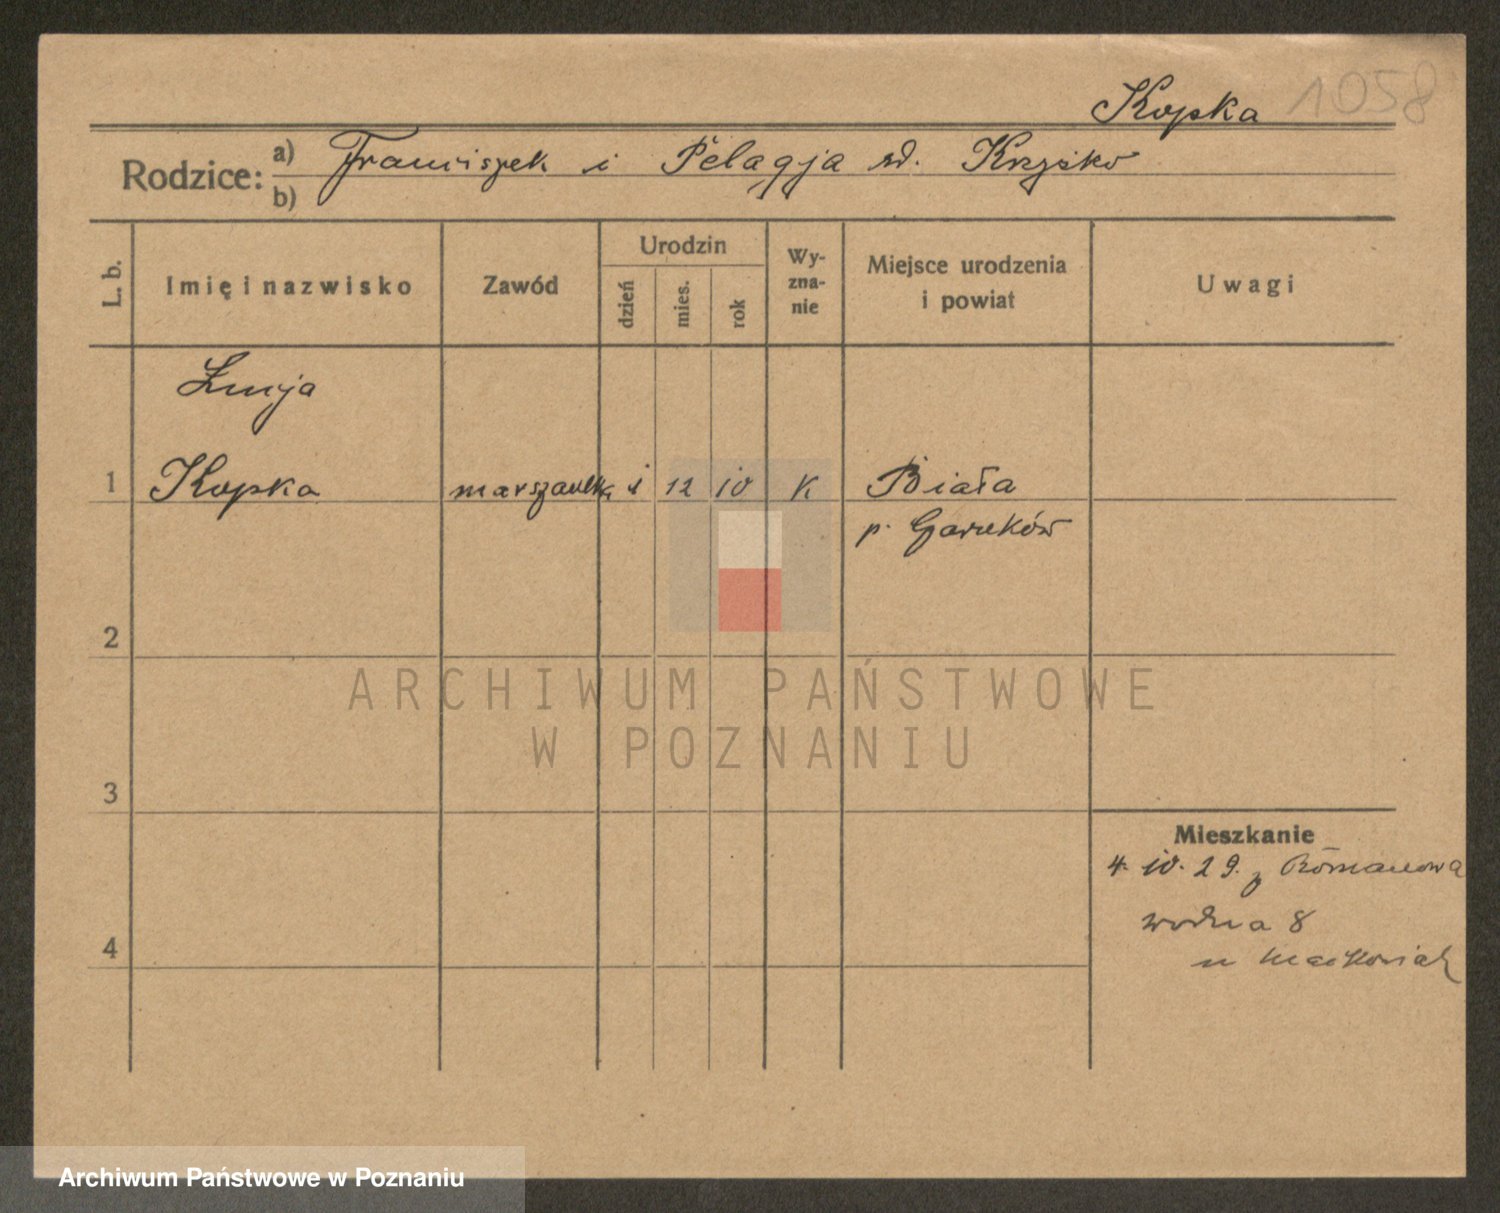 Kopka 1058
Rodzice: a) Franciszek i Pelagja rd. Krzyśko
b)
L. b.
Imię i nazwisko
Zawód
Urodzin
dzień
mies.
rok
Wy-
zna-
nie
Miejsce urodzenia
i powiat
Uwagi
1
Kopka
12 10 K Biała
p.
2
3
4
Mieszkanie
4. 10. 29. z Romanowa
wodna 8
u
ARCHIWUM PAŃSTWOWE
W POZNANIU
Archiwum Państwowe w Poznaniu